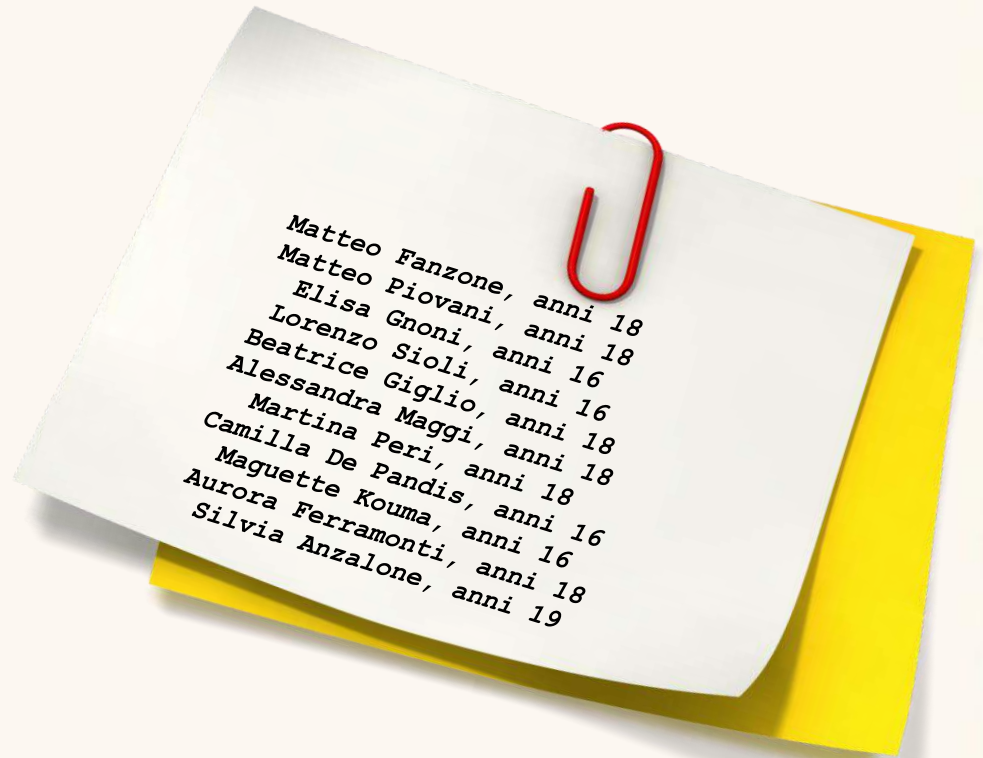 Matteo Fanzone, anni 18
Matteo Piovani, anni 18
Elisa Gnoni, anni 16
Lorenzo Sioli, anni 16
Beatrice Giglio, anni 18
Alessandra Maggi, anni 18
Martina Peri, anni 18
Camilla De Pandis, anni 16
Maguette Kouma, anni 16
Aurora Ferramonti, anni 18
Silvia Anzalone, anni 19